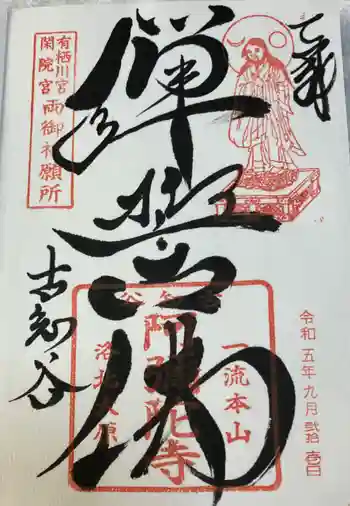 彈誓佛
有栖川宮
閑院宮
両御祈願所
古知谷
古知谷
一流本山
阿弥陀寺
洛北大原
令和五年九月弐拾壹日